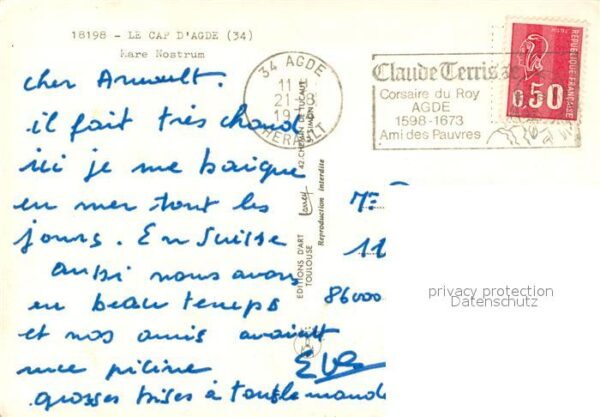 18198 - LE CAP D'AGDE (34)
Mare Nostrum
cher Arnault.
il fait très chaud
ici je me baigne
en mer tout les
jours. En Suisse
aussi nous avons
eu beau temps
et nos amis avaient
une picine
grosses bises à tout le monde
34 AGDE
11 H
21 - 8
19
HERAULT
Claude Terrisse
Corsaire du Roy
AGDE
1598-1673
Ami des Pauvres
REPUBLIQUE FRANCAISE
0,50
EDITIONS D'ART
TOULOUSE
Larrey
Reproduction interdite
Me
11
86000
privacy protection
Datenschutz